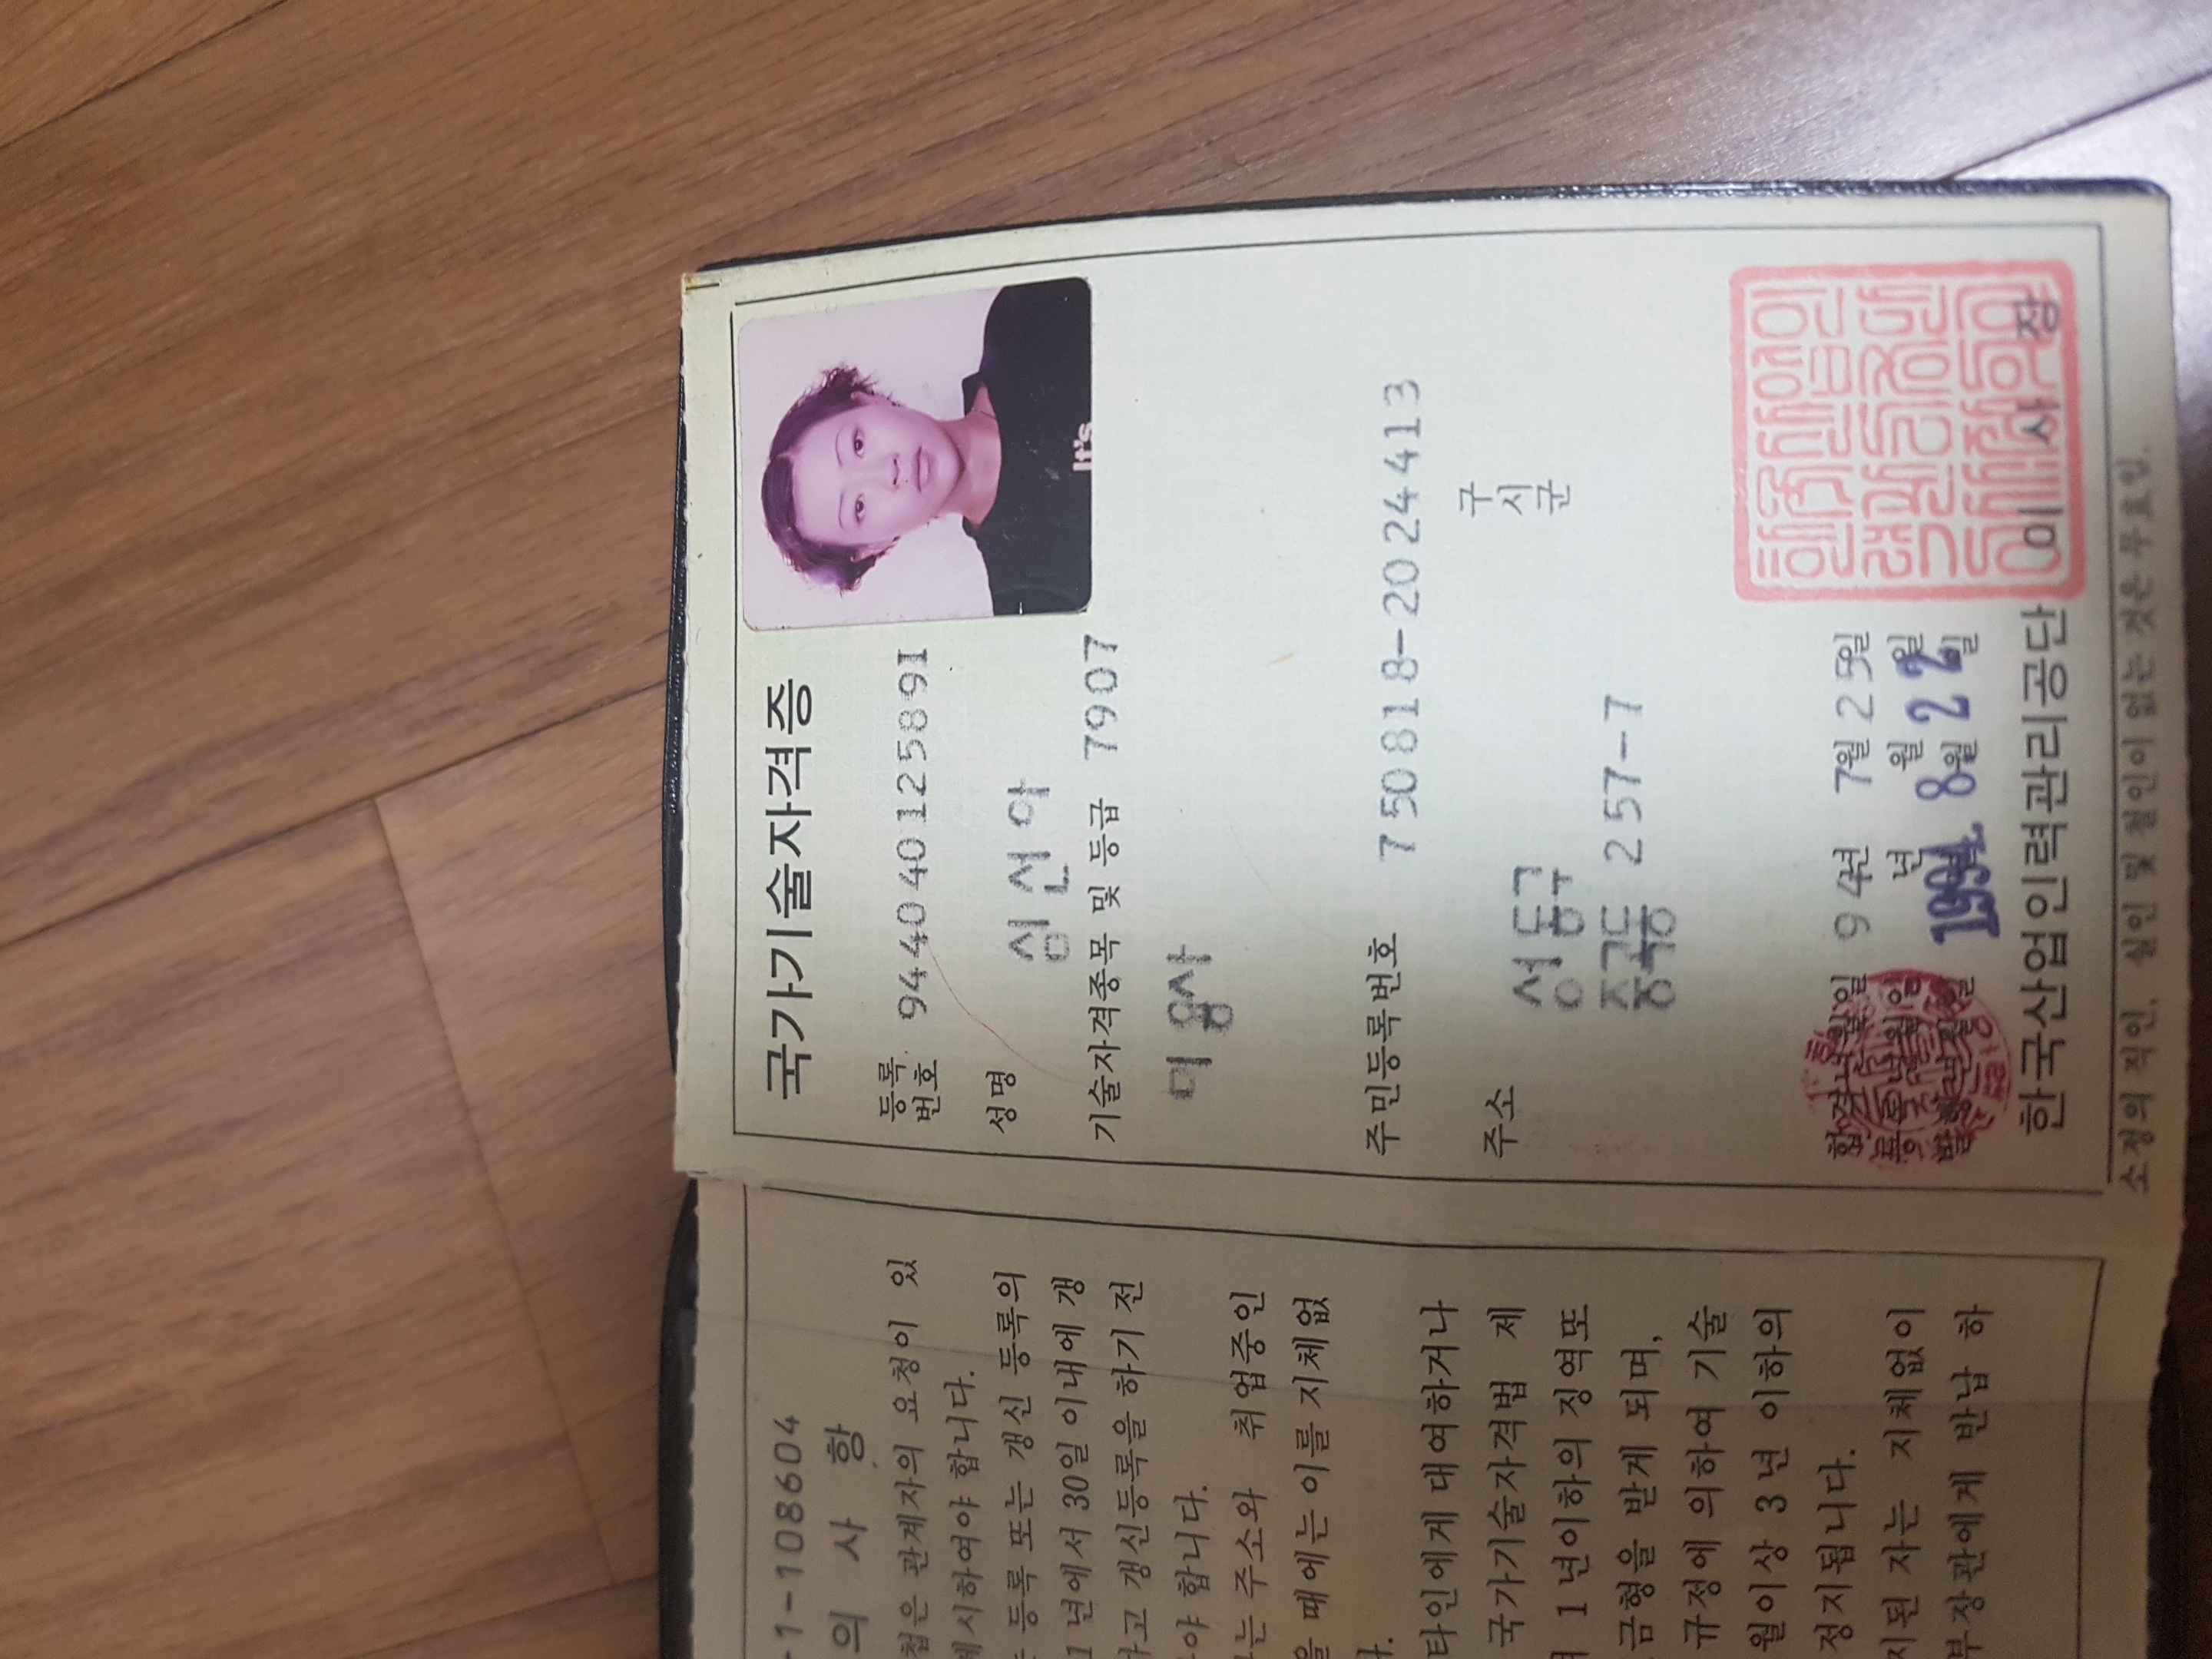 -1-108604
의 사 항
첩은 관계자의 요청이 있
제시하여야 합니다.
등록 또는 갱신 등록의
1년에서 30일 이내에 갱
하고 갱신등록을 하기 전
야 합니다.
는 주소와 취업중인
을 때에는 이를 지체없
다.
타인에게 대여하거나
국가기술자격법 제
1년이하의 징역또
금형을 받게 되며,
규정에 의하여 기술
월이상 3년 이하의
정지됩니다.
시된 자는 지체없이
부장관에게 반납 하
국가기술자격증
It's
등록번호 94404012589I
성명 심선아
기술자격종목 및 등급 7907
미용사
주민등록번호 750818-2024413
주소
구
시
군
성동구
중곡동 257-7
합격년월일 94년 7월 25일
등록년월일 년 월 일
발행년월일 1994년 8월 22일
한국산업인력관리공단 이사장
소정의 직인, 실인 및 철인이 없는 것은 무효임.